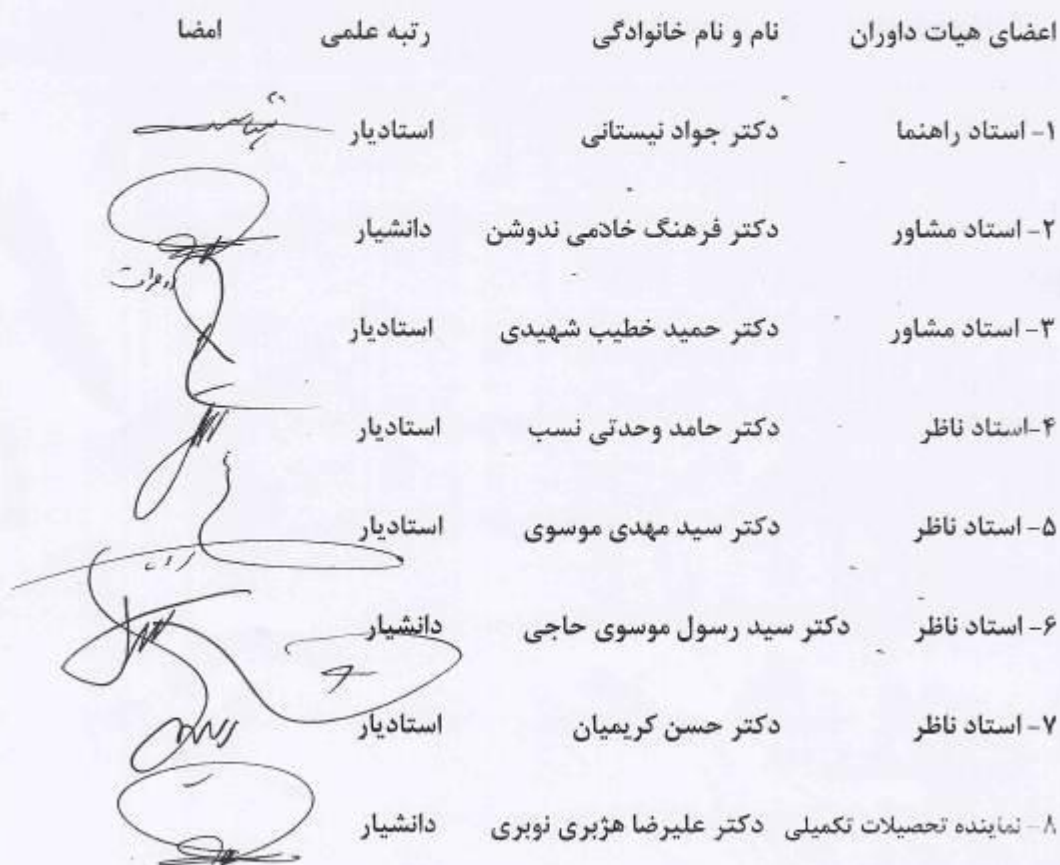 اعضای هیات داوران نام و نام خانوادگی رتبه علمی امضا
۱- استاد راهنما دکتر جواد نیستانی استادیار
۲- استاد مشاور دکتر فرهنگ خادمی ندوشن دانشیار
۳- استاد مشاور دکتر حمید خطیب شهیدی استادیار
۴-استاد ناظر دکتر حامد وحدتی نسب استادیار
۵- استاد ناظر دکتر سید مهدی موسوی استادیار
۶- استاد ناظر دکتر سید رسول موسوی حاجی دانشیار
۷- استاد ناظر دکتر حسن کریمیان استادیار
۸- نماینده تحصیلات تکمیلی دکتر علیرضا هژبری نوبری دانشیار